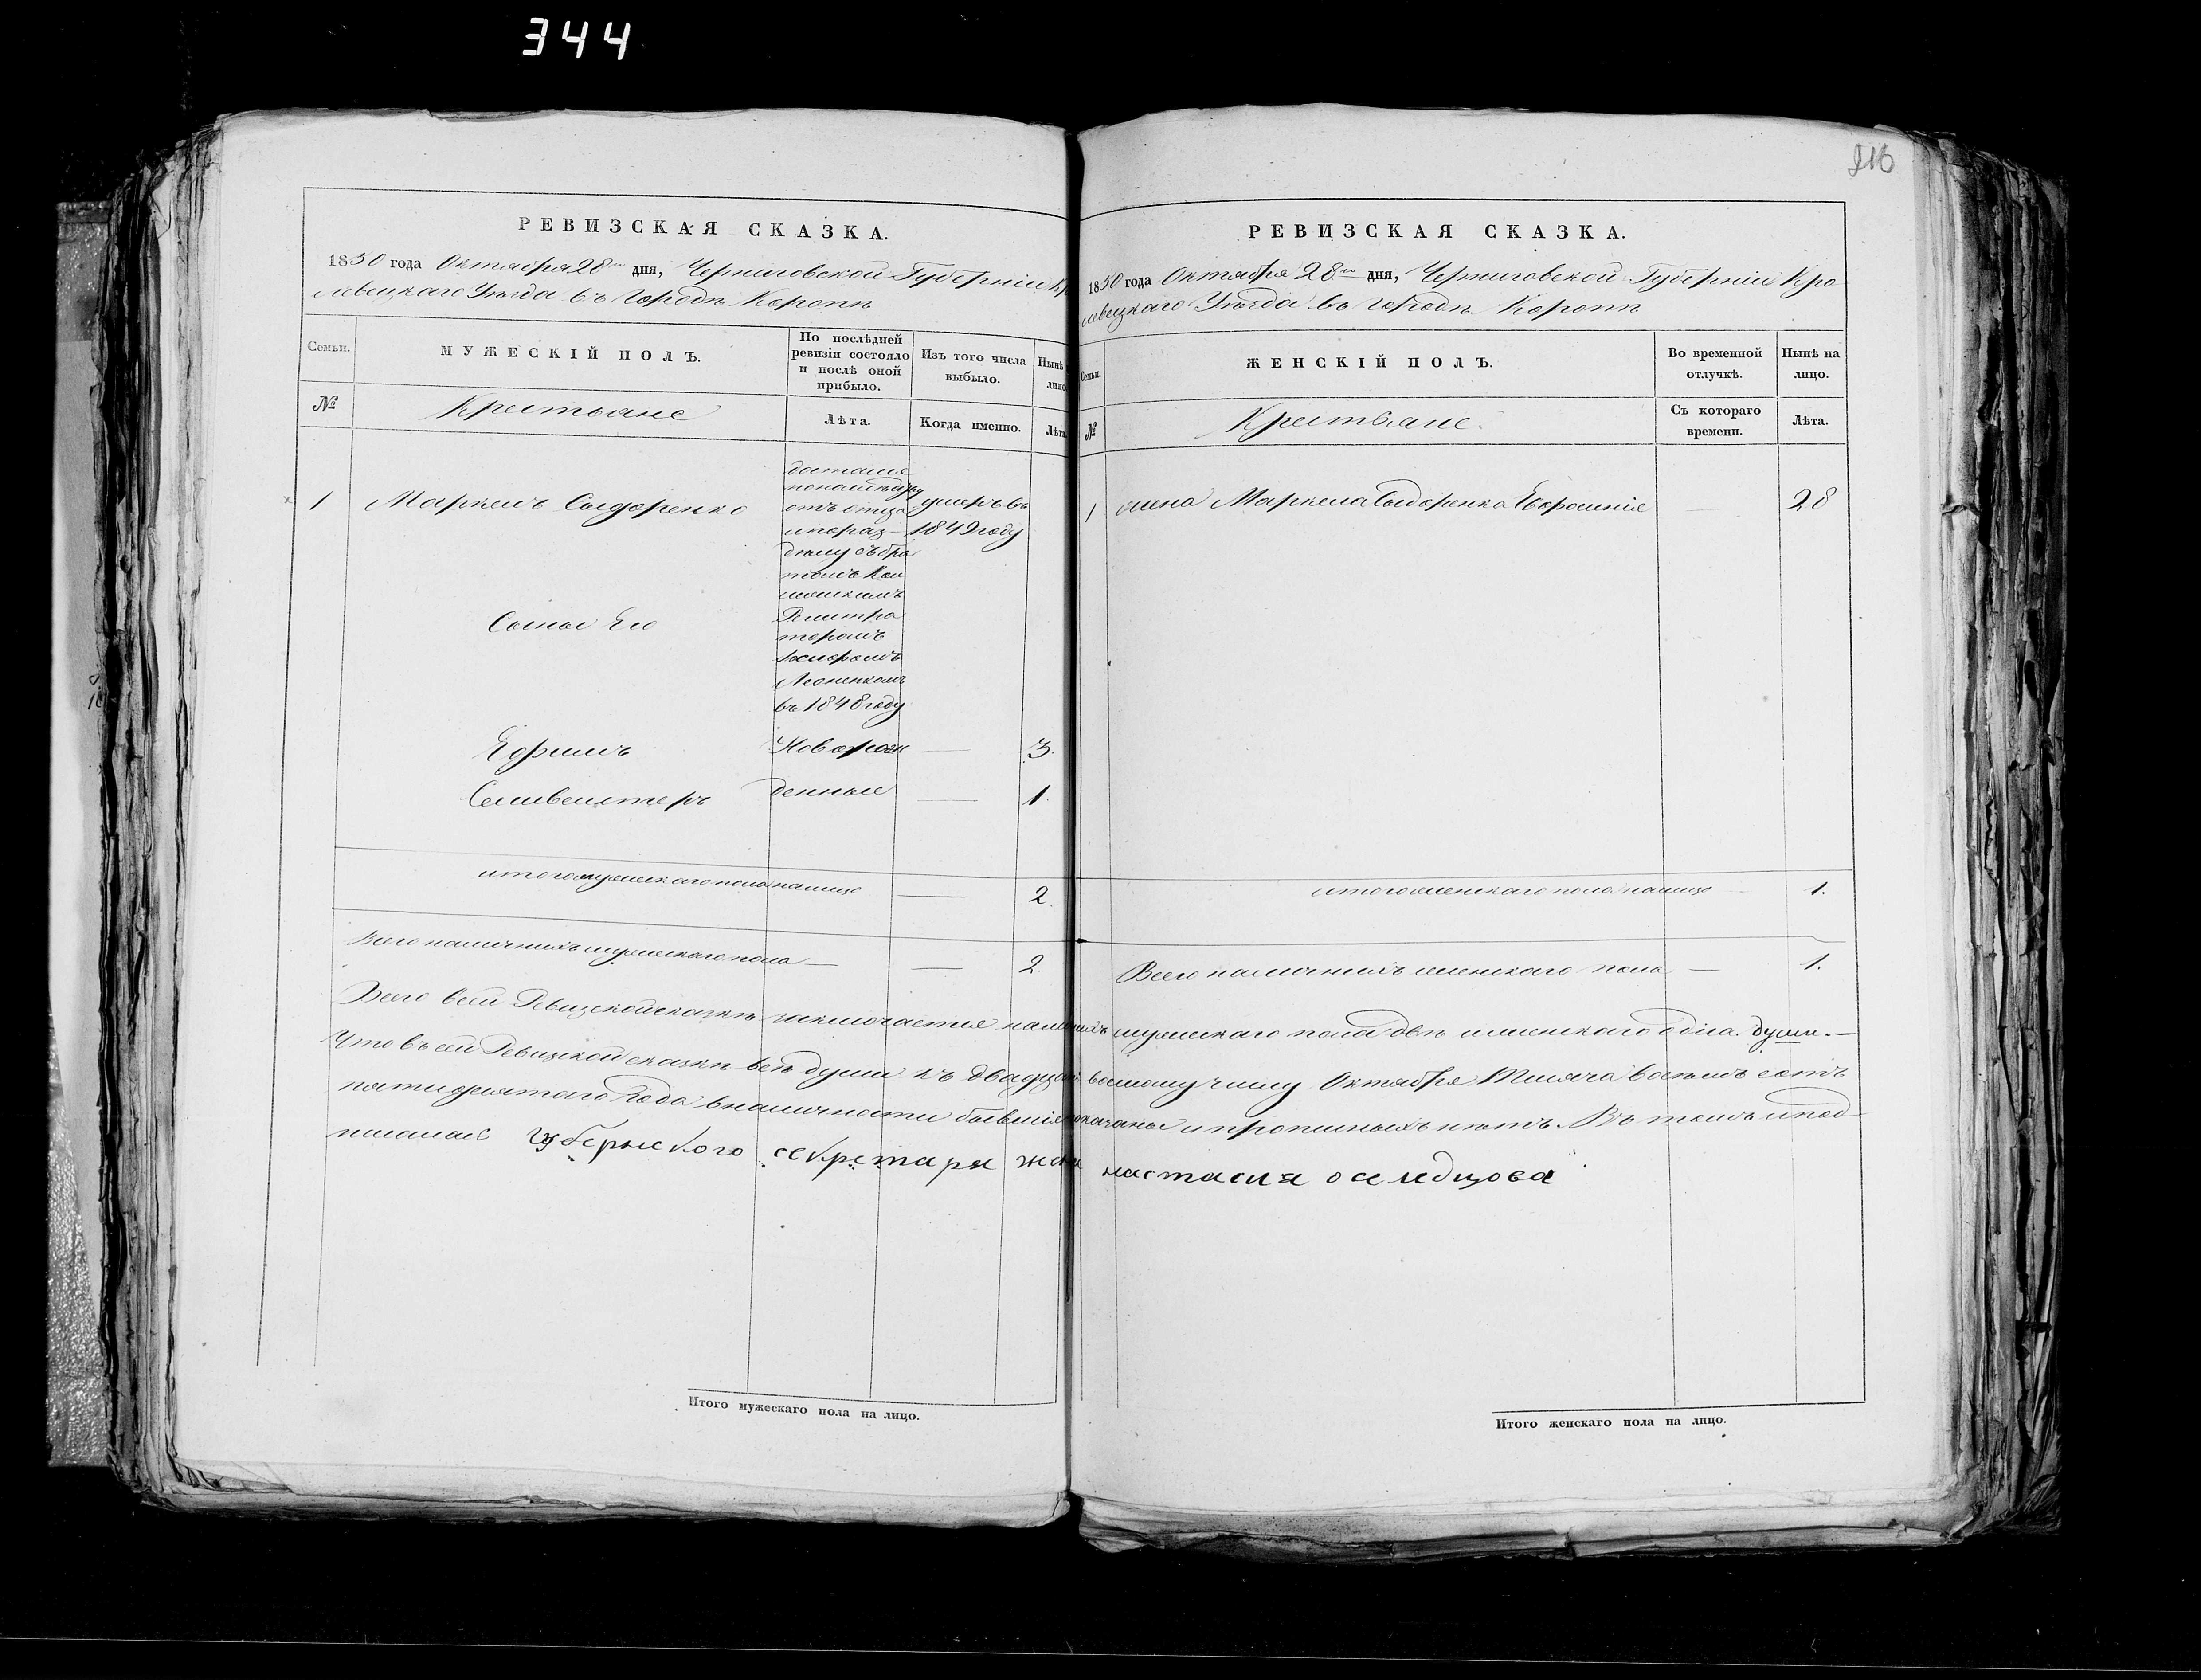 344
РЕВИЗСКАЯ СКАЗКА.
1850 года Октября 28го дня, Черниговской Губерніи Кро
левецкаго Уѣзда въ Городѣ Коропѣ
Семьи.
МУЖЕСКІЙ ПОЛЪ.
По послѣдней
ревизіи состояло
и послѣ оной
прибыло.
Изъ того числа
выбыло.
Нынѣ
лицо
№
Крестьяне
Лѣта.
Когда именно.
Лѣта
1
Маркелъ Сыдоренко
достался
отъ отца
дѣлу съ бра
въ 1848 году
умеръ въ
1849 году
Сыны Его
Ефимъ
Новорож
—
3.
Селивестеръ
денные
—
1.
итого мужескаго пола налице
—
2.
Всего наличныхъ мужескаго пола —
—
2.
РЕВИЗСКАЯ СКАЗКА.
1850 года Октября 28го дня, Черниговской Губерніи Кро
левецкаго Уѣзда въ Городѣ Коропѣ
Семьи.
ЖЕНСКІЙ ПОЛЪ.
Во временной
отлучкѣ.
Нынѣ на
лицо.
№
Крестьяне.
Съ котораго
времени.
Лѣта.
1
жена Маркела Сыдоренка
—
28
итого женскаго пола налице
—
1.
Всего наличныхъ женскаго пола
—
1.
Всего въ сей Ревизской сказкѣ заключается наличныхъ мужескаго пола двѣ и женскаго одна. души. —
Что въ сей Ревизской сказкѣ всѣ души къ двадцать восьмому числу Октября Тысяча восемь сотъ
пятидесятого Года въ наличности бывшія показаны и прописныхъ нѣтъ. Въ томъ и под-
писалась Губернского секретаря жена настасия оселедцова
Итого мужескаго пола на лицо.
Итого женскаго пола на лицо.